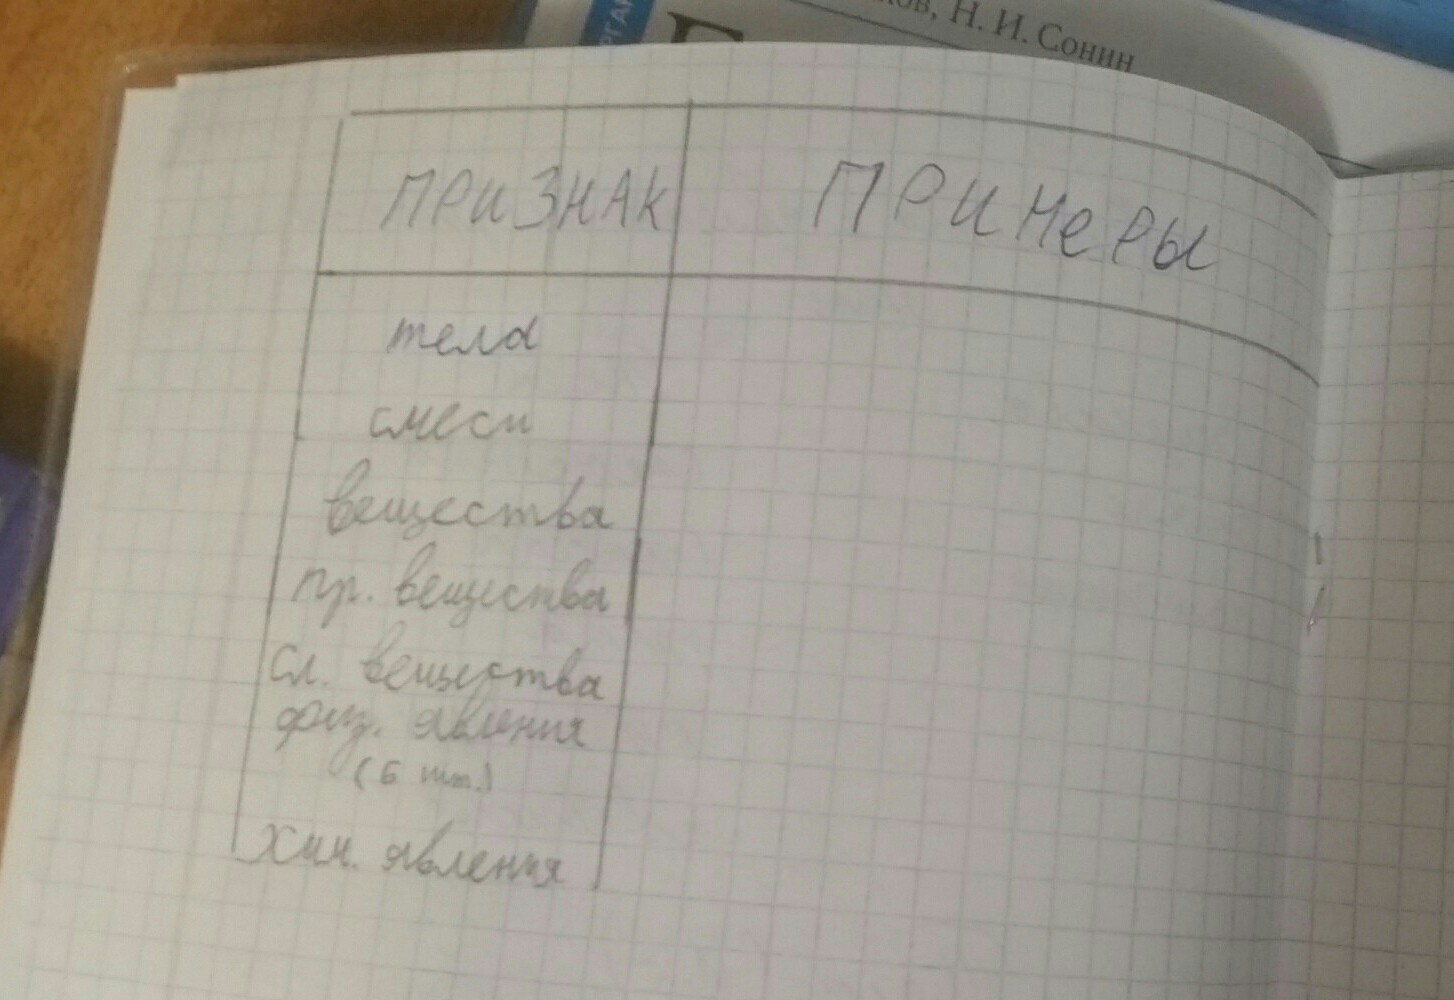 Н. И. Сонин
ПРИЗНАК ПРИМеРЫ
тела
смеси
вещества
пр. вещества
сл. вещества
физ. явления
(6 шт.)
хим. явления